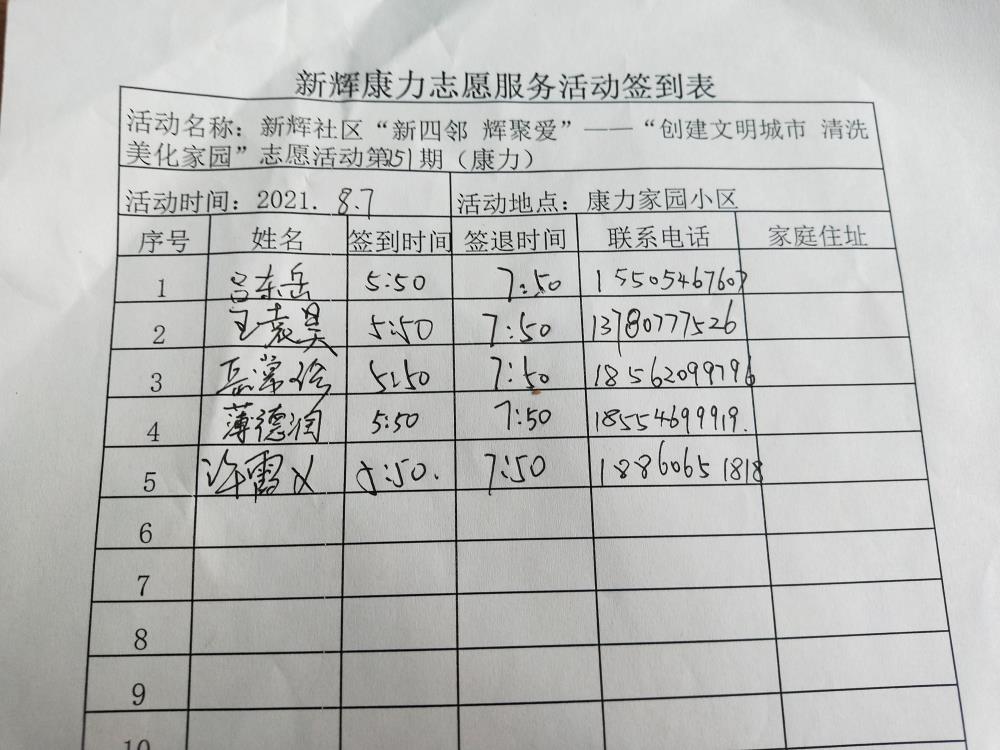 新辉康力志愿服务活动签到表
活动名称：新辉社区“新四邻 辉聚爱”——“创建文明城市 清洗
美化家园”志愿活动第251期（康力）
活动时间：2021. 8.7 活动地点：康力家园小区
序号 姓名 签到时间 签退时间 联系电话 家庭住址
1 吕东岳 5:50 7:50 15505467607
2 王袁昊 5:50 7:50 13780777526
3 岳常 5:50 7:50 18562099796
4 薄德润 5:50 7:50 18554699919.
5 许霞 5:50. 7:50 18860651818
6
7
8
9
10